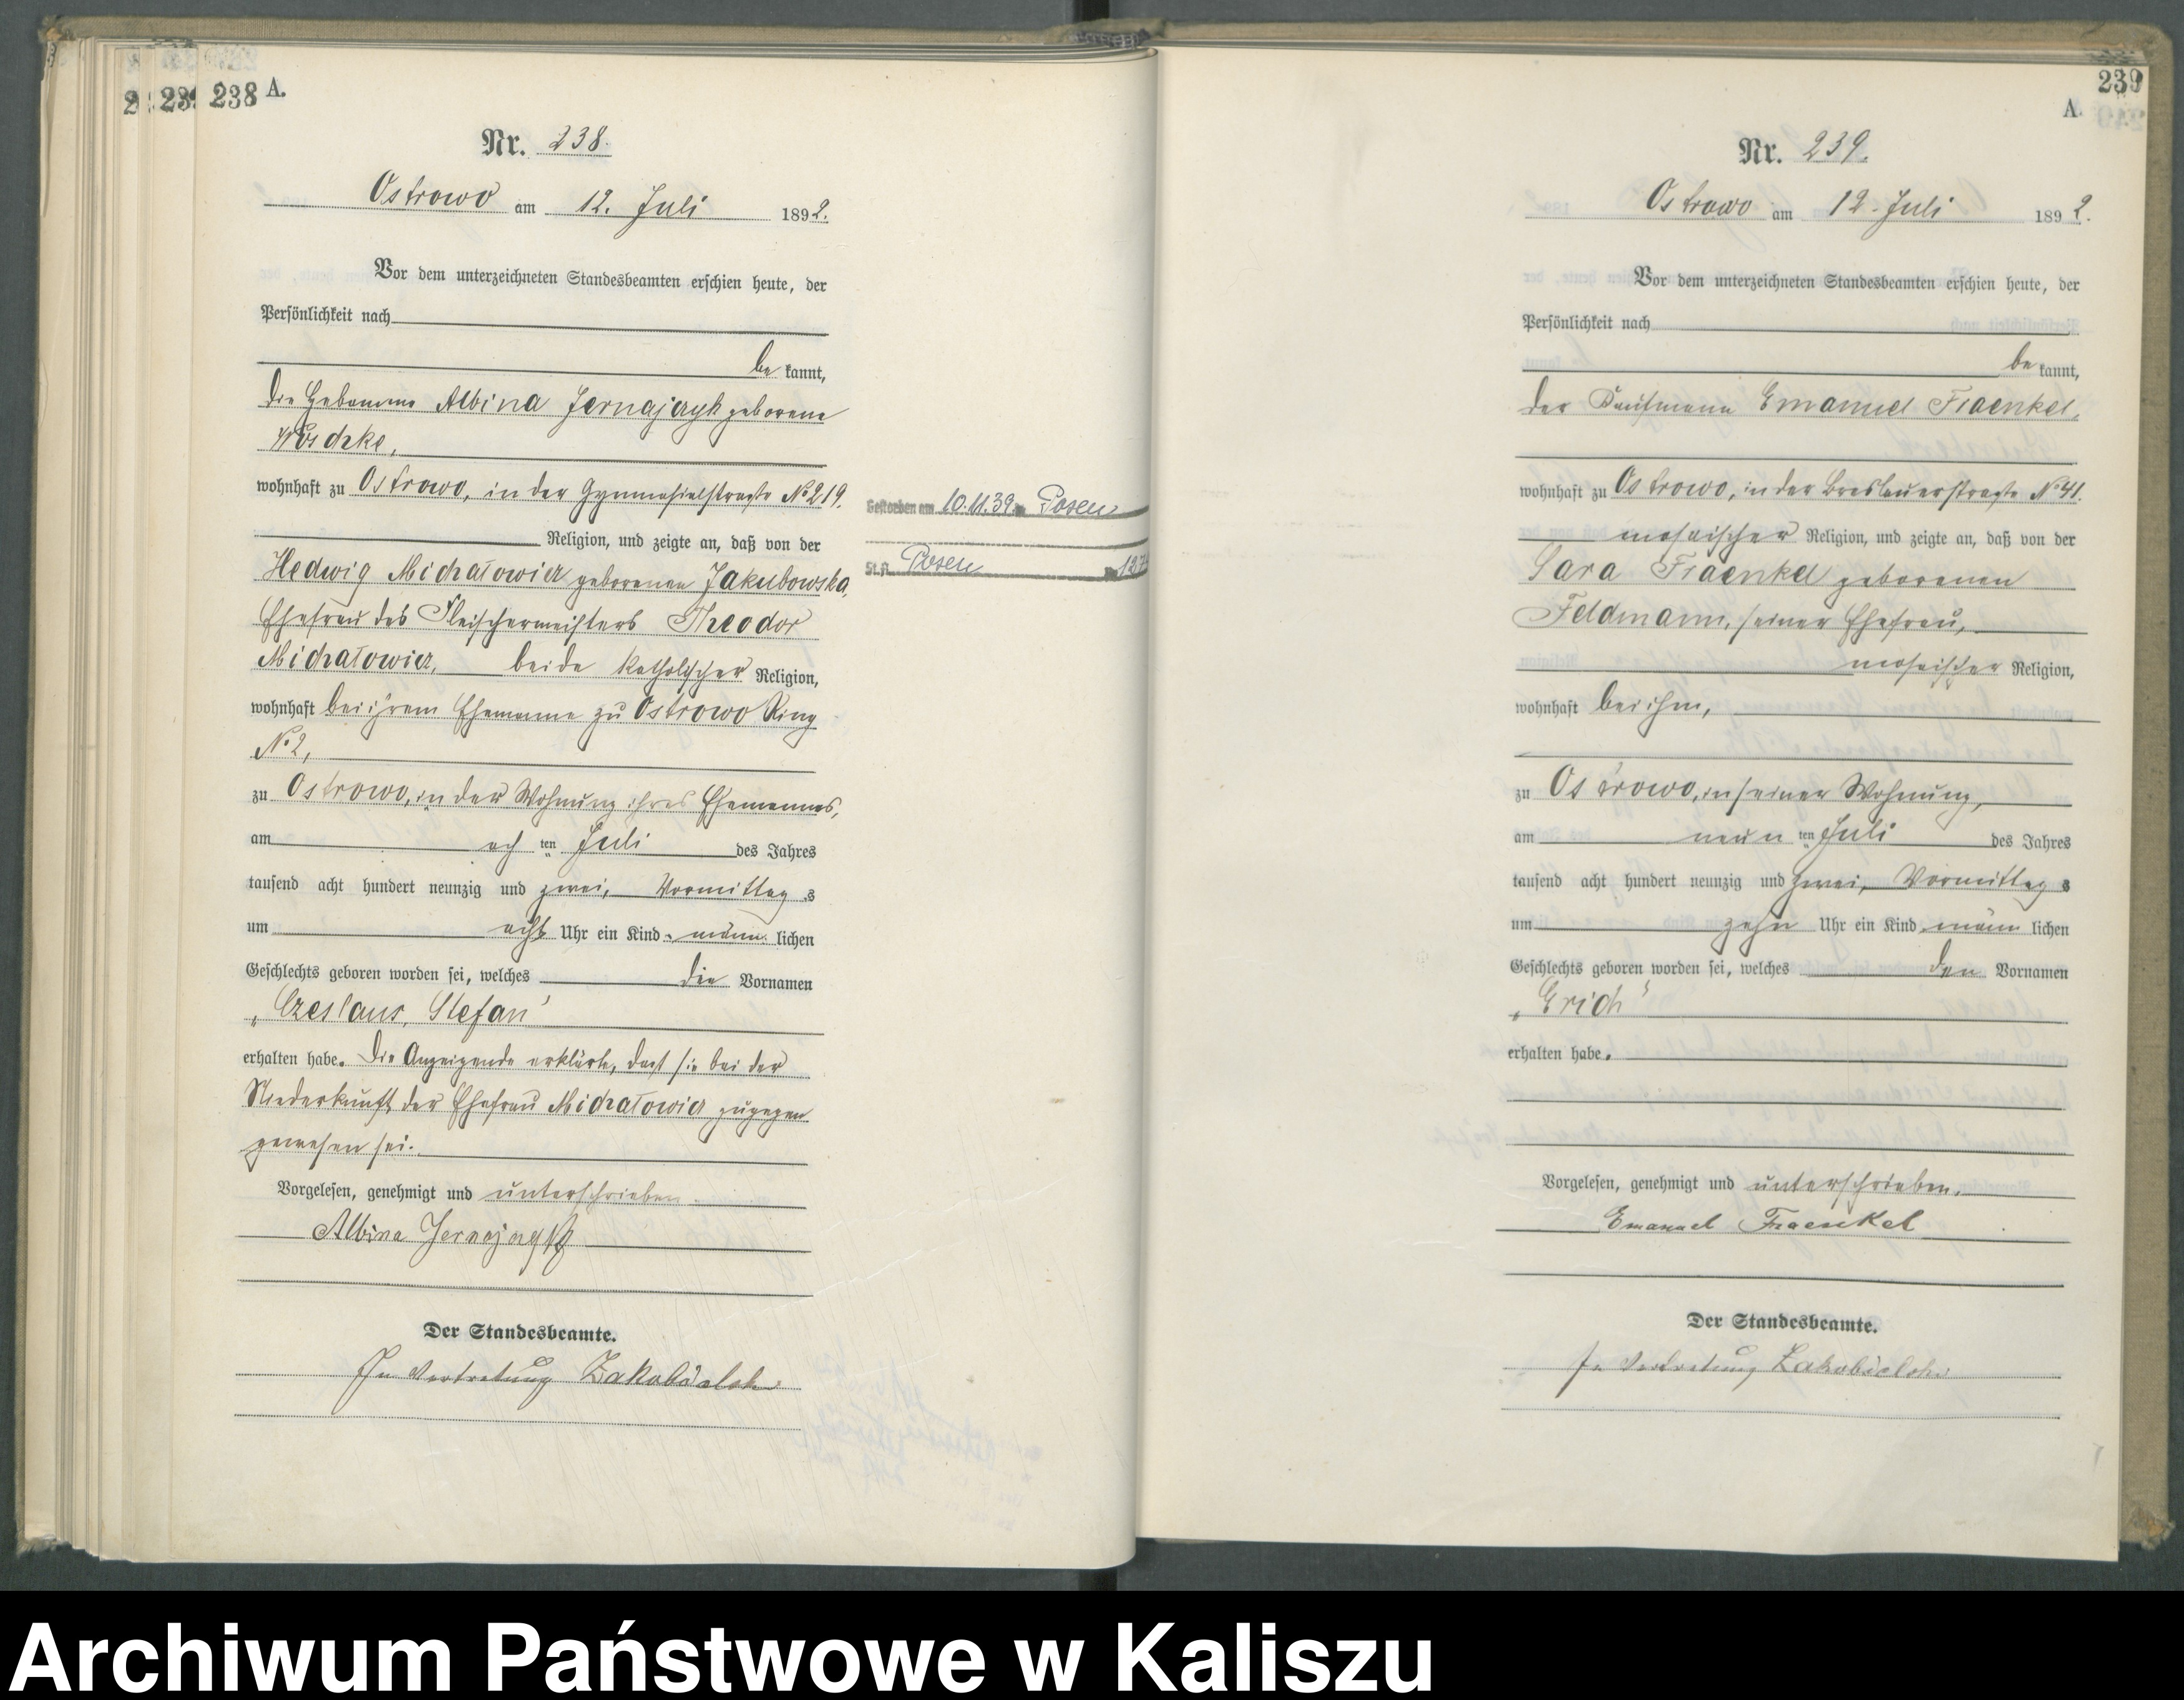 238 A.
Nr. 238.
Ostrowo am 12. Juli 1892.
Vor dem unterzeichneten Standesbeamten erschien heute, der
Persönlichkeit nach
be kannt,
die Hebamme Albina Jernajczyk geborene
wohnhaft zu Ostrowo, in der Gymnasialstraße № 219.
Religion, und zeigte an, daß von der
Hedwig Michałowicz geborenen Jakubowska,
Ehefrau des Fleischermeisters Theodor
Michałowicz, beide katholischer Religion,
wohnhaft bei ihrem Ehemanne zu Ostrowo Ring
№ 2,
zu Ostrowo, in der Wohnung ihres Ehemannes,
am ach ten Juli des Jahres
tausend acht hundert neunzig und zwei, Vormittag s
um acht Uhr ein Kind männ lichen
Geschlechts geboren worden sei, welches die Vornamen
„Czeslaus, Stefan"
erhalten habe. Die Anzeigende erklärte, daß sie bei der
Niederkunft der Ehefrau Michałowicz zugegen
gewesen sei.
Vorgelesen, genehmigt und unterschrieben.
Albina Jernajczyk
Der Standesbeamte.
In Vertretung Zakobielski
Gestorben am 10.11.39 Posen
St.A. Posen
239
A.
Nr. 239.
Ostrowo am 12. Juli 1892.
Vor dem unterzeichneten Standesbeamten erschien heute, der
Persönlichkeit nach
be kannt,
der Kaufmann Emanuel Fraenkel,
wohnhaft zu Ostrowo, in der Breslauerstraße № 41.
mosaischer Religion, und zeigte an, daß von der
Sara Fraenkel geborenen
Feldmann, seiner Ehefrau,
mosaischer Religion,
wohnhaft bei ihm,
zu Ostrowo, in seiner Wohnung,
am neun ten Juli des Jahres
tausend acht hundert neunzig und zwei, Vormittag s
um zehn Uhr ein Kind männ lichen
Geschlechts geboren worden sei, welches den Vornamen
„Erich"
erhalten habe.
Vorgelesen, genehmigt und unterschrieben.
Emanuel Fraenkel
Der Standesbeamte.
In Vertretung Zakobielski
Archiwum Państwowe w Kaliszu